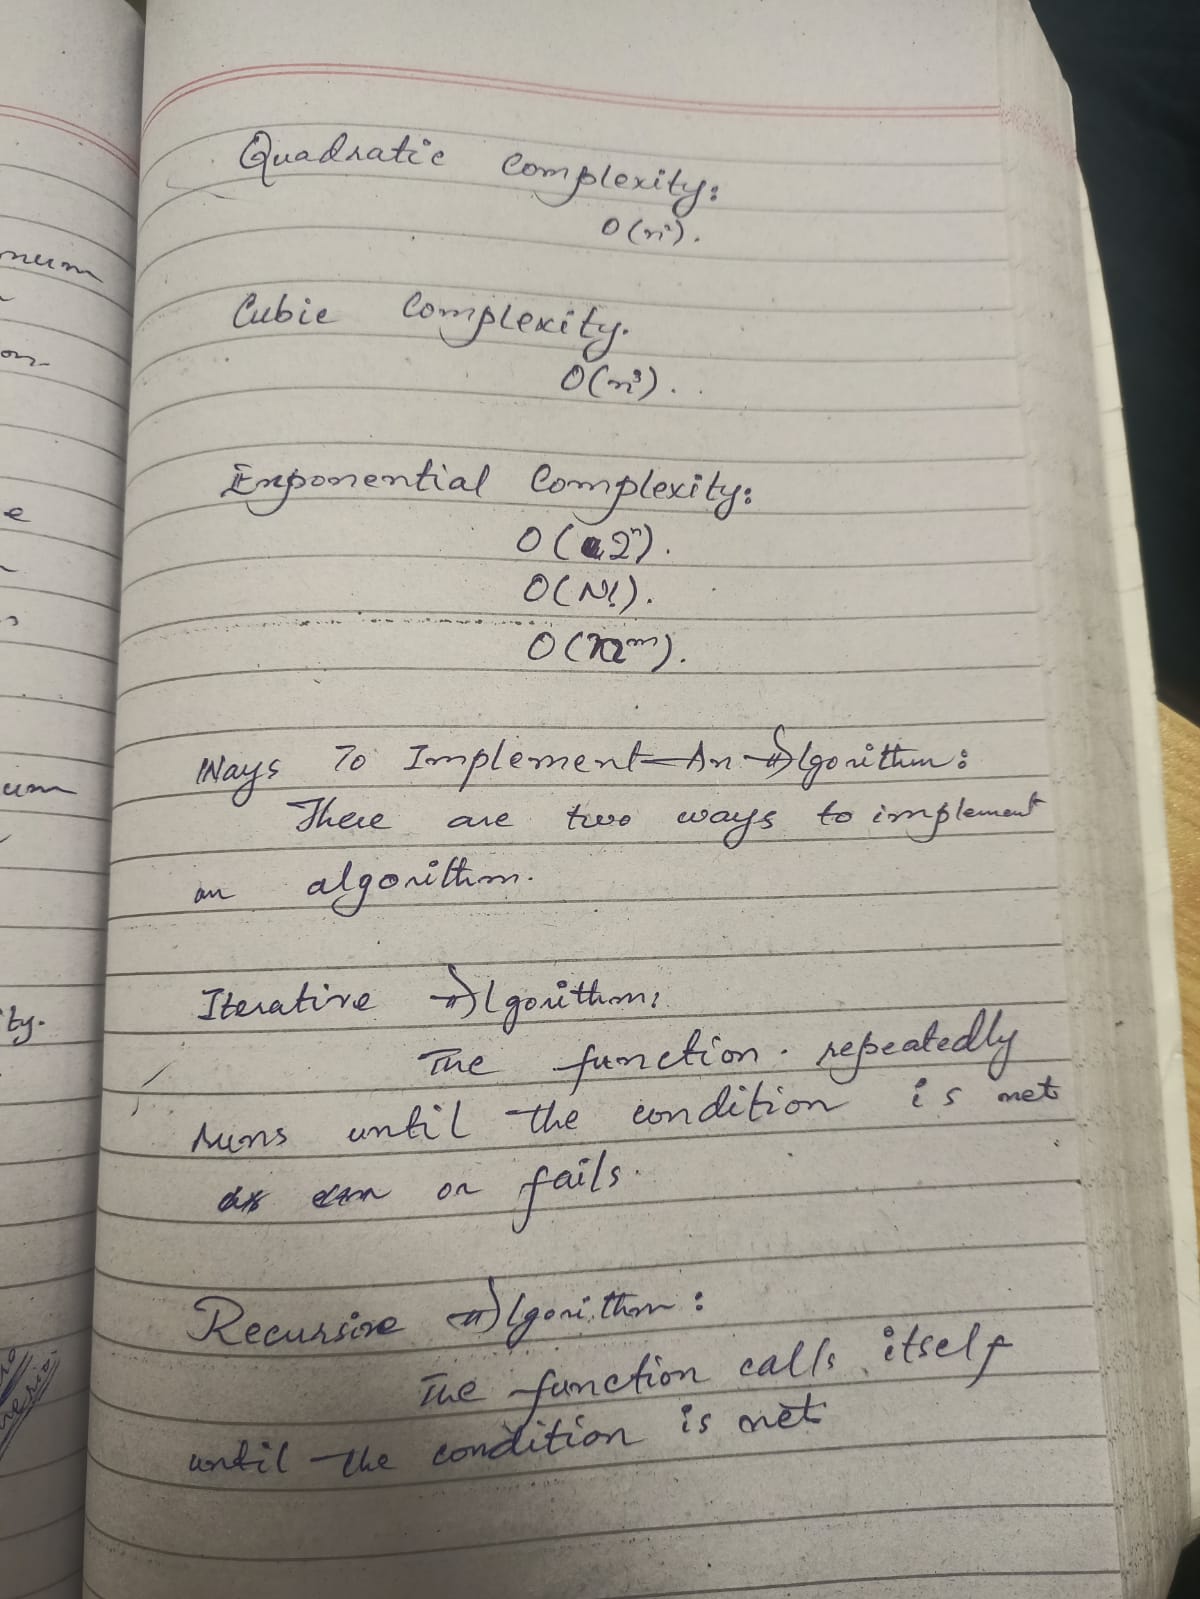 Quadratic Complexity:
O(n²).
Cubic Complexity.
O(n³). .
Exponential Complexity:
O(2ⁿ).
O(N!).
Ways To Implement An Algorithm:
There are two ways to implement
an algorithm.
Iterative Algorithm:
The function. repeatedly
runs until the condition is met
or fails.
Recursive Algorithm:
The function calls itself
until the condition is met
num
on
e
um
ty.